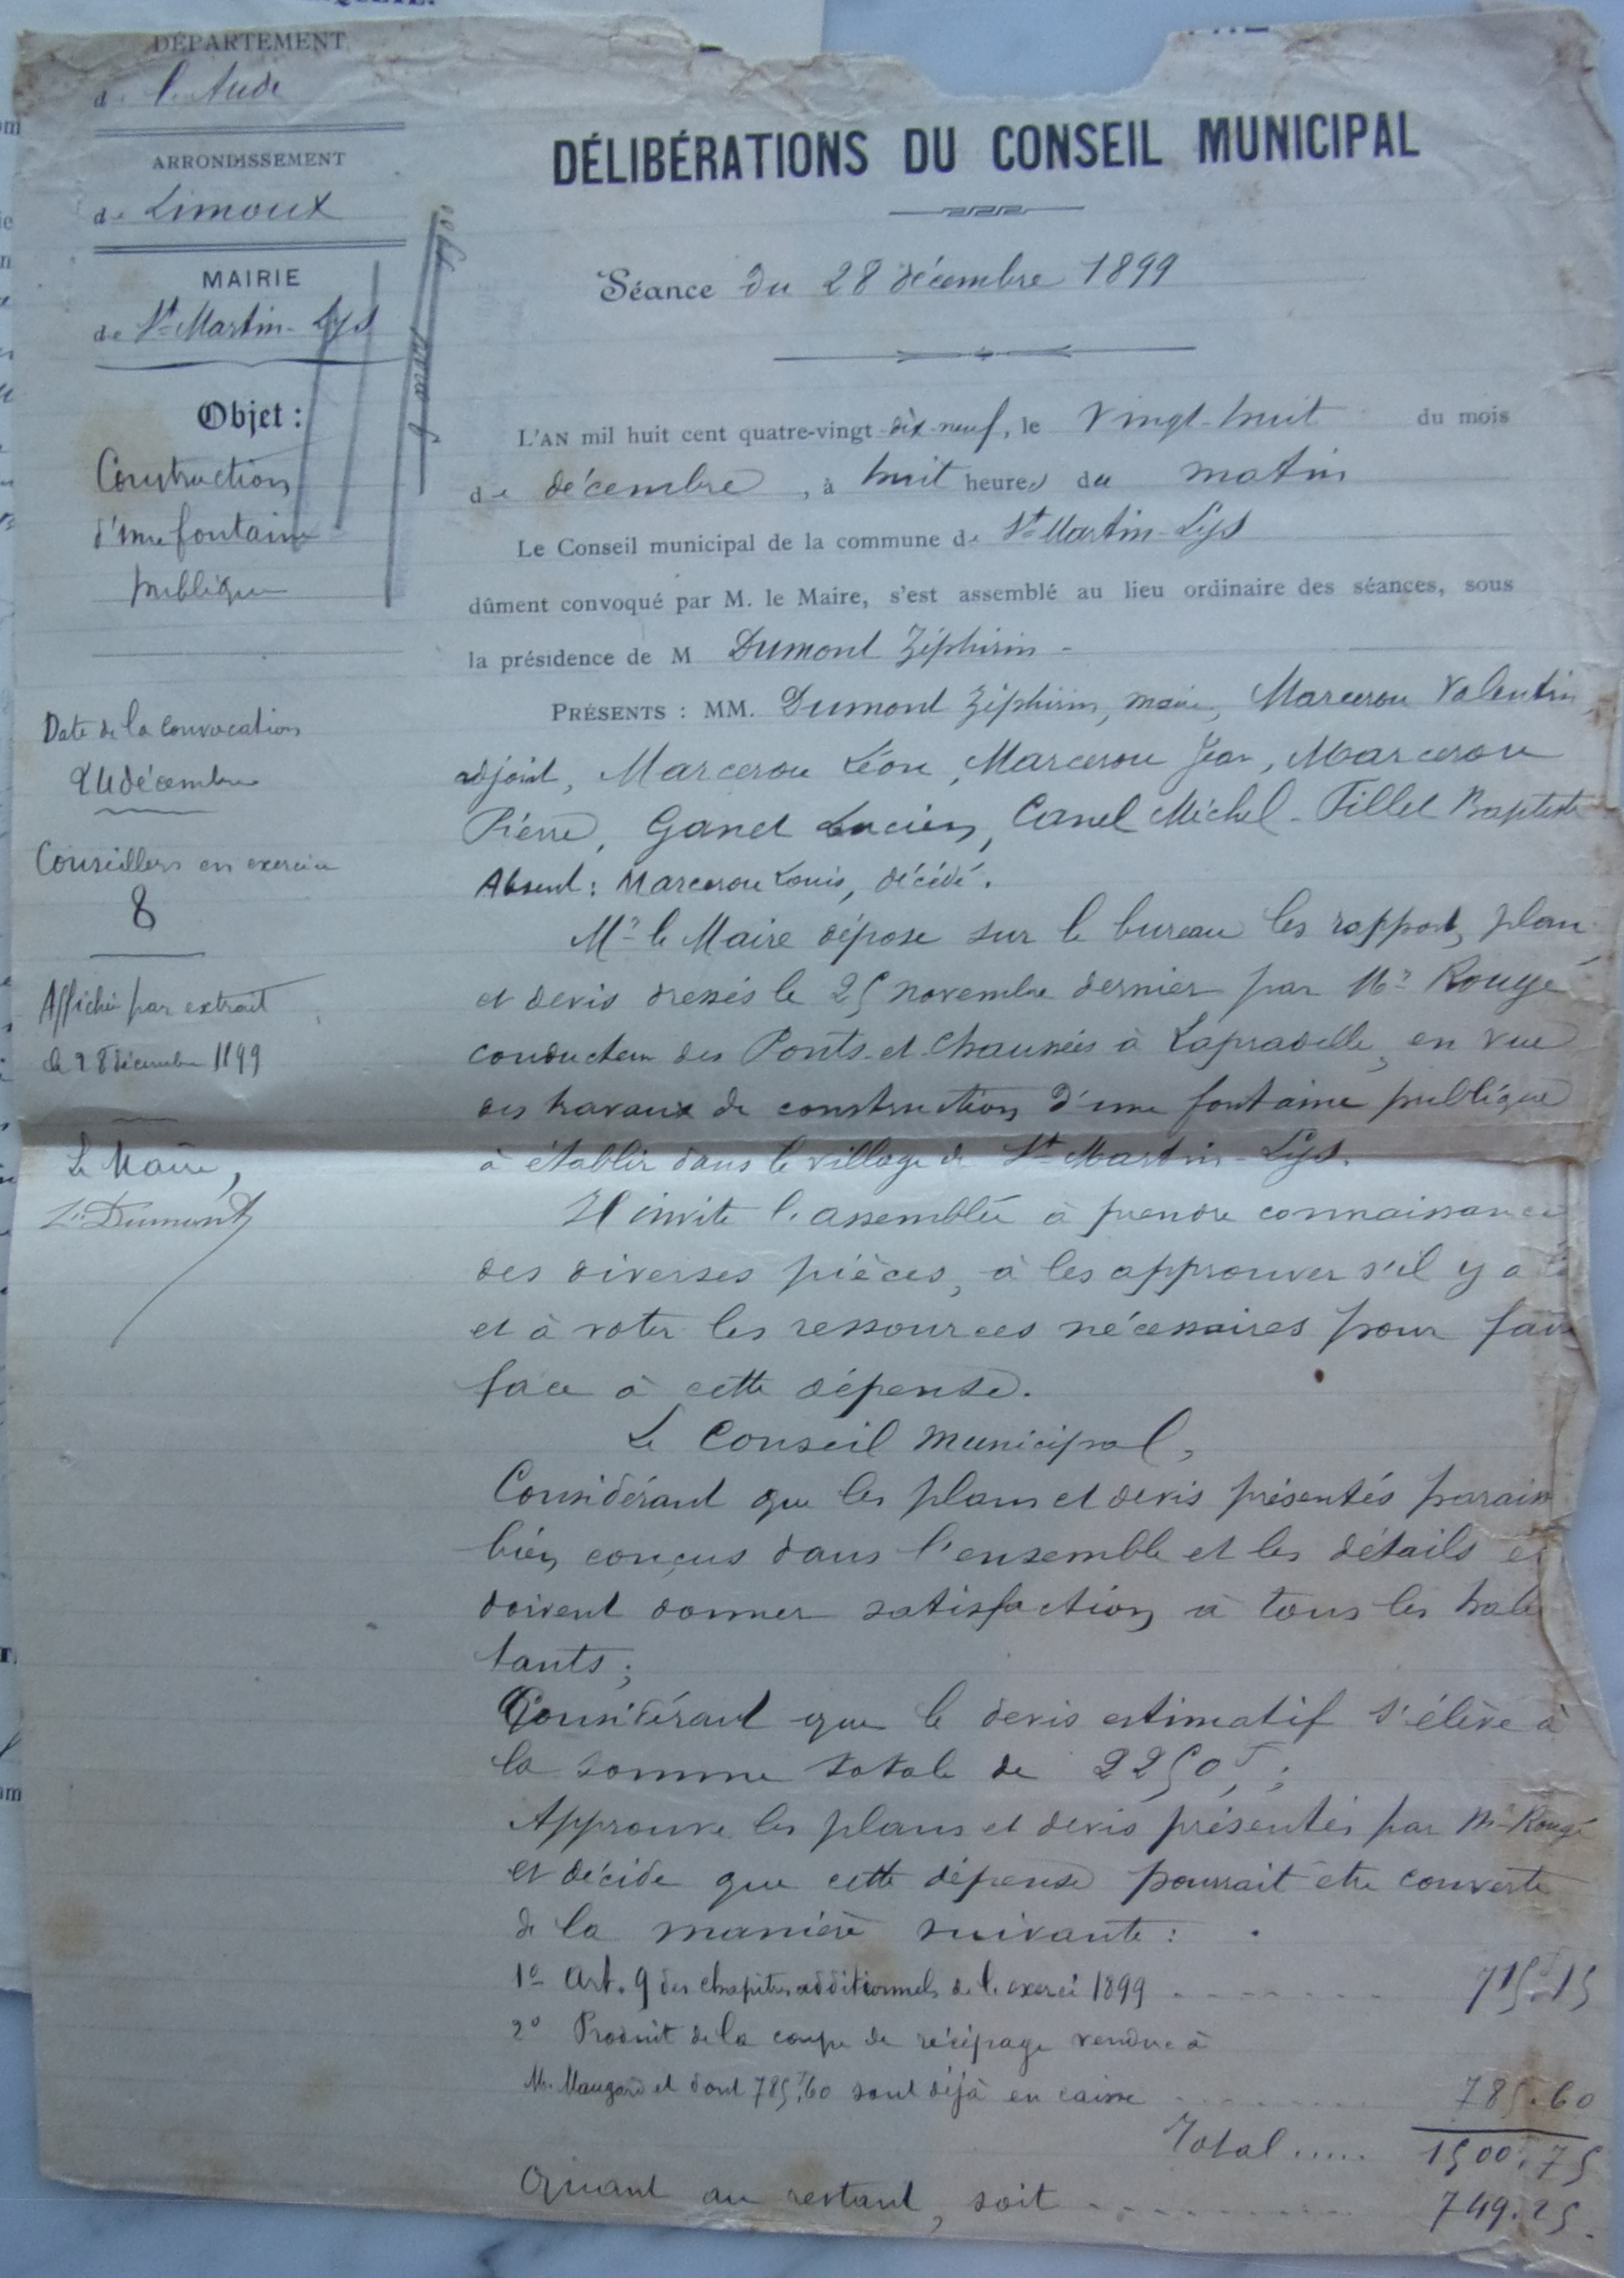 DÉPARTEMENT
de l'Aude
ARRONDISSEMENT
de Limoux
MAIRIE
de St Martin-Lys
Objet :
Construction
d'une fontaine
publique
Date de la convocation
24 décembre
Conseillers en exercice
8
Affiché par extrait
le 28 décembre 1899
Le Maire,
Z. Dumont
DÉLIBÉRATIONS DU CONSEIL MUNICIPAL
Séance du 28 décembre 1899
L'AN mil huit cent quatre-vingt-dix-neuf, le vingt-huit du mois
de décembre, à huit heures du matin
Le Conseil municipal de la commune de St Martin-Lys
dûment convoqué par M. le Maire, s'est assemblé au lieu ordinaire des séances, sous
la présidence de M Dumont Zéphirin -
PRÉSENTS : MM. Dumont Zéphirin, maire, Marcerou Valentin,
adjoint, Marcerou Léon, Marcerou Jean, Marcerou
Pierre, Ganet Lucien, Canel Michel - Tillet Baptiste
Absent : Marcerou Louis, décédé.
Mr le Maire dépose sur le bureau les rapport, plan
et devis dressés le 25 novembre dernier par Mr Rougé
conducteur des Ponts-et-Chaussées à Lapradelle, en vue
des travaux de construction d'une fontaine publique
à établir dans le village de St Martin-Lys.
Il invite l'assemblée à prendre connaissance
des diverses pièces, à les approuver s'il y a
et à voter les ressources nécessaires pour faire
face à cette dépense.
Le Conseil municipal,
Considérant que les plans et devis présentés parais
bien conçus dans l'ensemble et les détails et
doivent donner satisfaction à tous les habi
tants ;
Considérant que le devis estimatif s'élève à
la somme totale de 2250f, ;
Approuve les plans et devis présentés par Mr Rougé
et décide que cette dépense pourrait être couverte
de la manière suivante :
1º Art. 9 des chapitres additionnels de l'exercice 1899 - - - - - - - 715f.15
2º Produit de la coupe de récépage vendue à
M. Maugard et dont 785f.60 sont déjà en caisse - - - - - - - 785.60
Total ..... 1500f.75
Quant au restant, soit - - - - - - - - - 749.25.